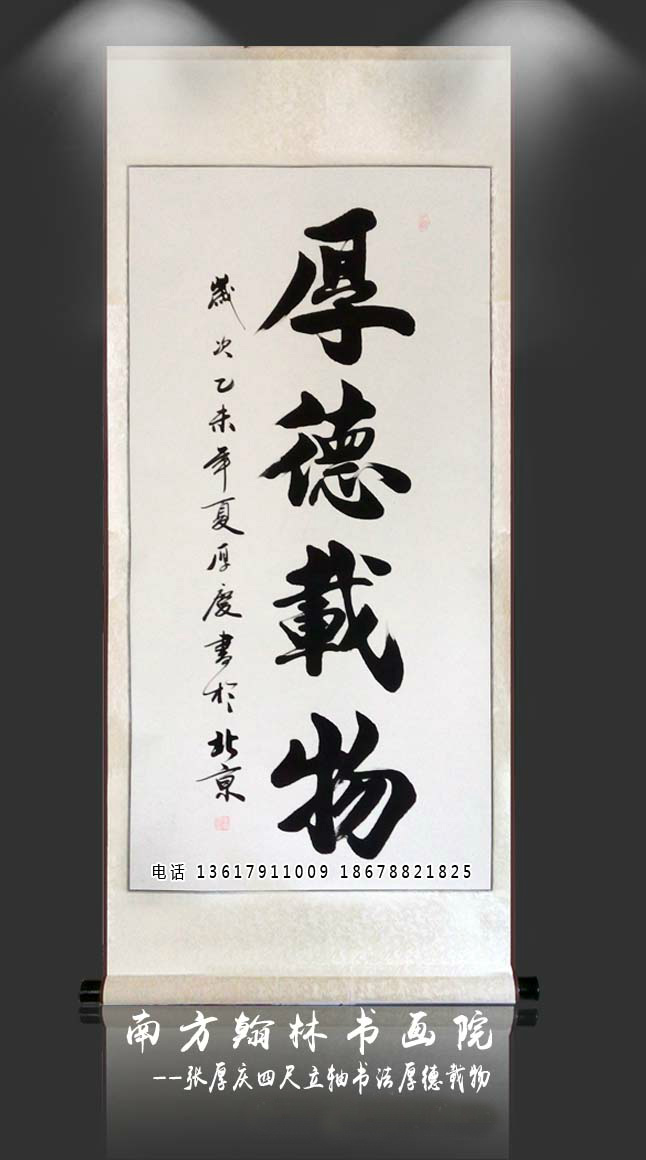 厚德載物
歲次乙未年夏厚慶書於北京
电话 13617911009 18678821825
南方翰林书画院
--张厚庆四尺立轴书法厚德载物